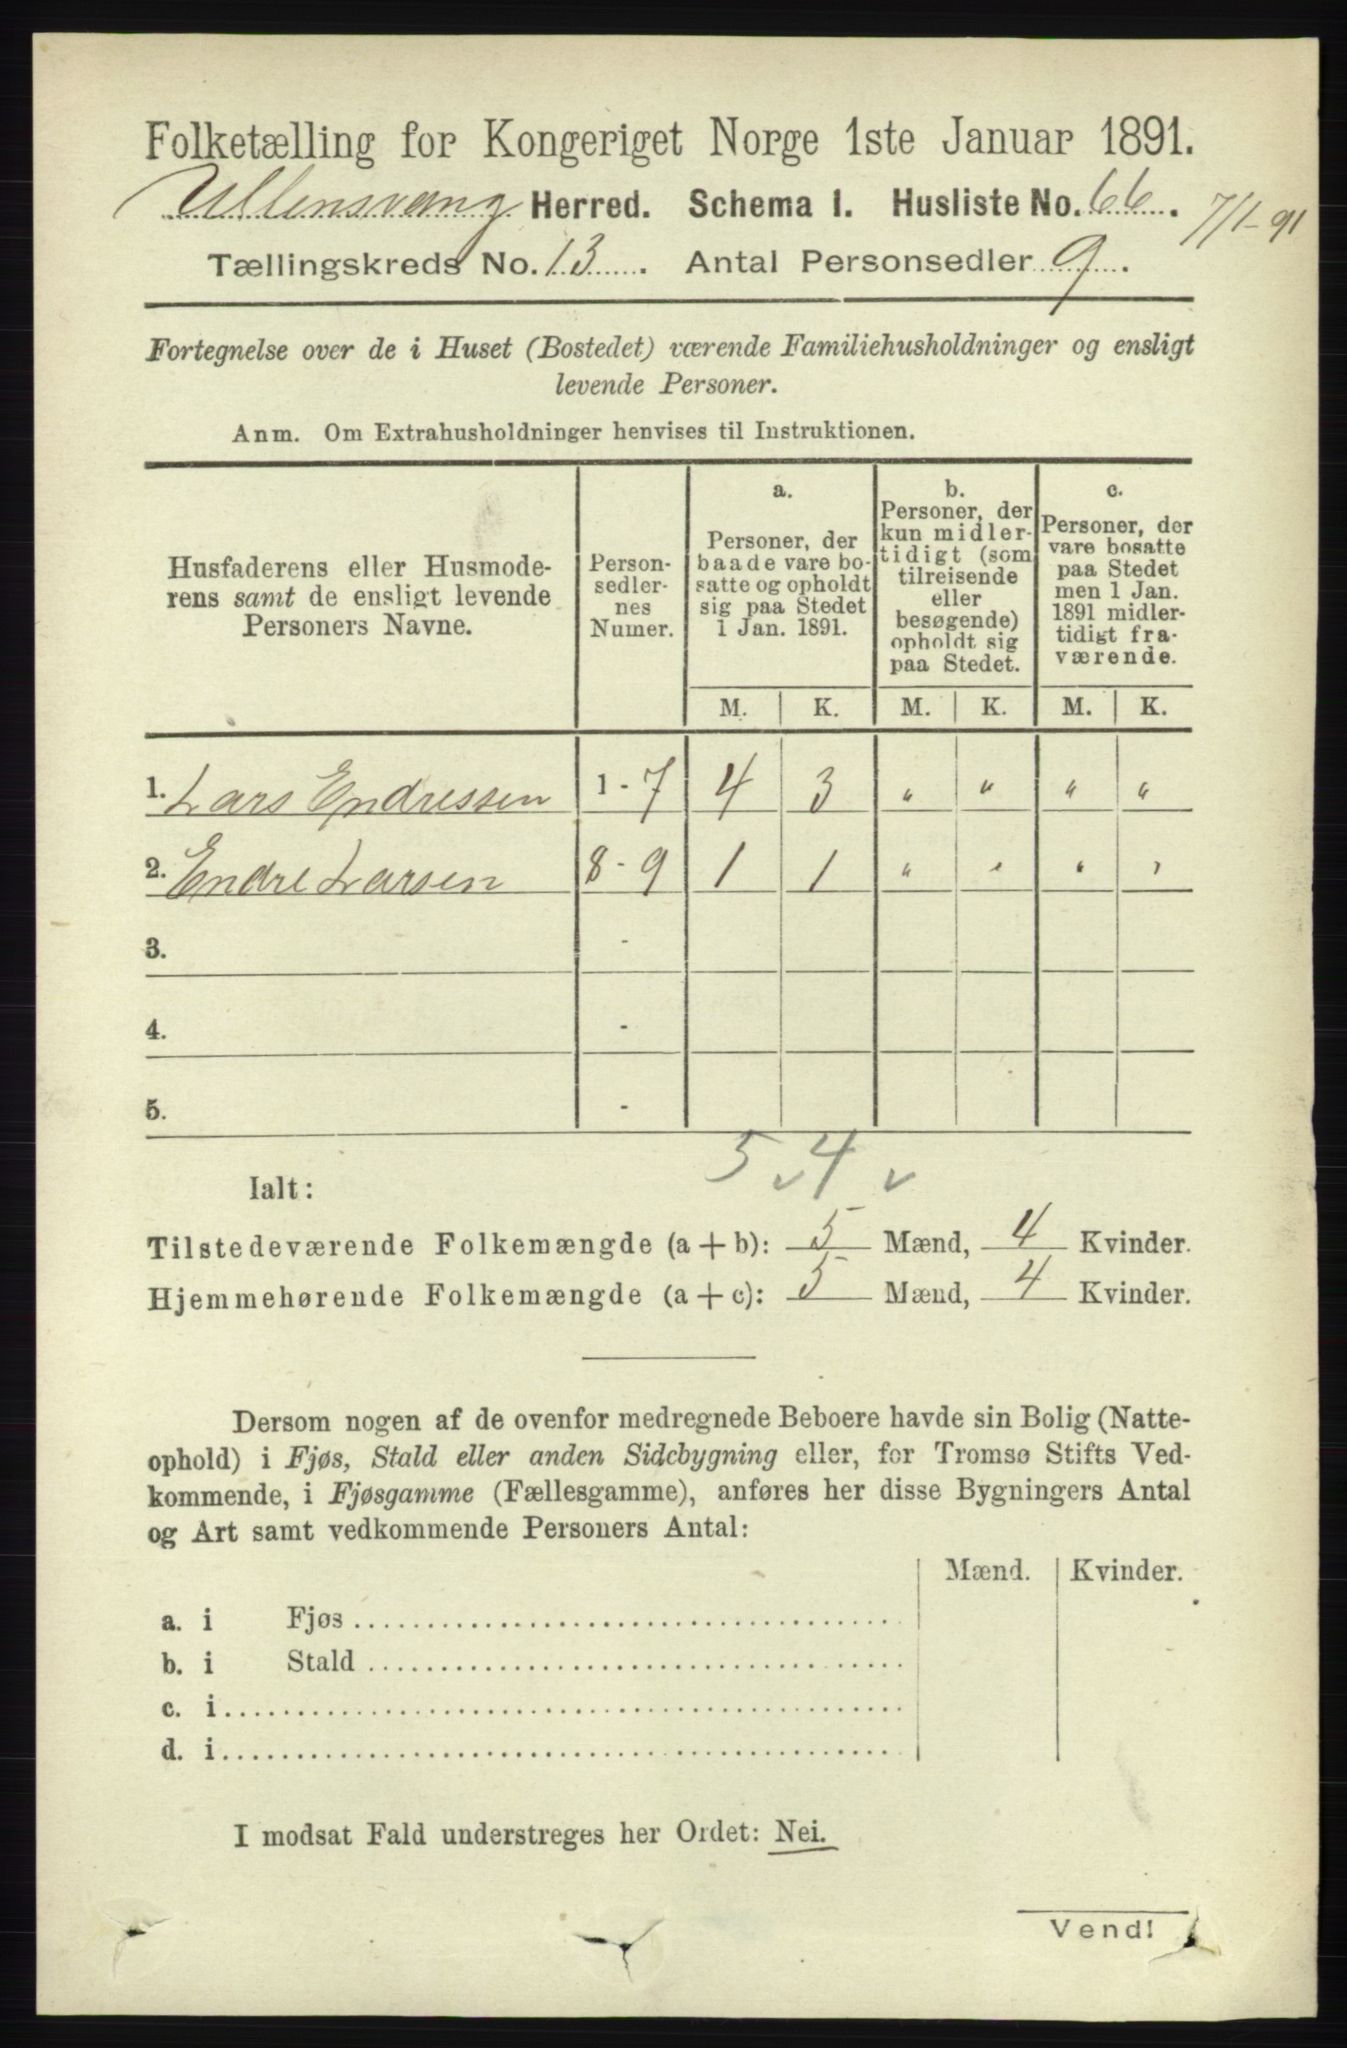 Folketælling for Kongeriget Norge 1ste Januar 1891.
Ullensvang Herred. Schema 1. Husliste No. 66.
7/1-91
Tællingskreds No. 13. Antal Personsedler 9.
Fortegnelse over de i Huset (Bostedet) værende Familiehusholdninger og ensligt
levende Personer.
Anm. Om Extrahusholdninger henvises til Instruktionen.
Husfaderens eller Husmode-
rens samt de ensligt levende
Personers Navne.
Person-
sedler-
nes
Numer.
a.
Personer, der
baade vare bo-
satte og opholdt
sig paa Stedet
1 Jan. 1891.
b.
Personer, der
kun midler-
tidigt (som
tilreisende
eller
besøgende)
opholdt sig
paa Stedet.
c.
Personer, der
vare bosatte
paa Stedet
men 1 Jan.
1891 midler-
tidigt fra-
værende.
M. K. M. K. M. K.
1. Lars Endressen 1 - 7 4 3 " " " "
2. Endre Larsen 8 - 9 1 1 " " " "
3. -
4. -
5. -
5 v 4 v
Ialt:
Tilstedeværende Folkemængde (a + b): 5 Mænd, 4 Kvinder.
Hjemmehørende Folkemængde (a + c): 5 Mænd, 4 Kvinder.
Dersom nogen af de ovenfor medregnede Beboere havde sin Bolig (Natte-
ophold) i Fjøs, Stald eller anden Sidebygning eller, for Tromsø Stifts Ved-
kommende, i Fjøsgamme (Fællesgamme), anføres her disse Bygningers Antal
og Art samt vedkommende Personers Antal:
Mænd. Kvinder.
a. i Fjøs
b. i Stald
c. i
d. i
I modsat Fald understreges her Ordet: Nei.
Vend!